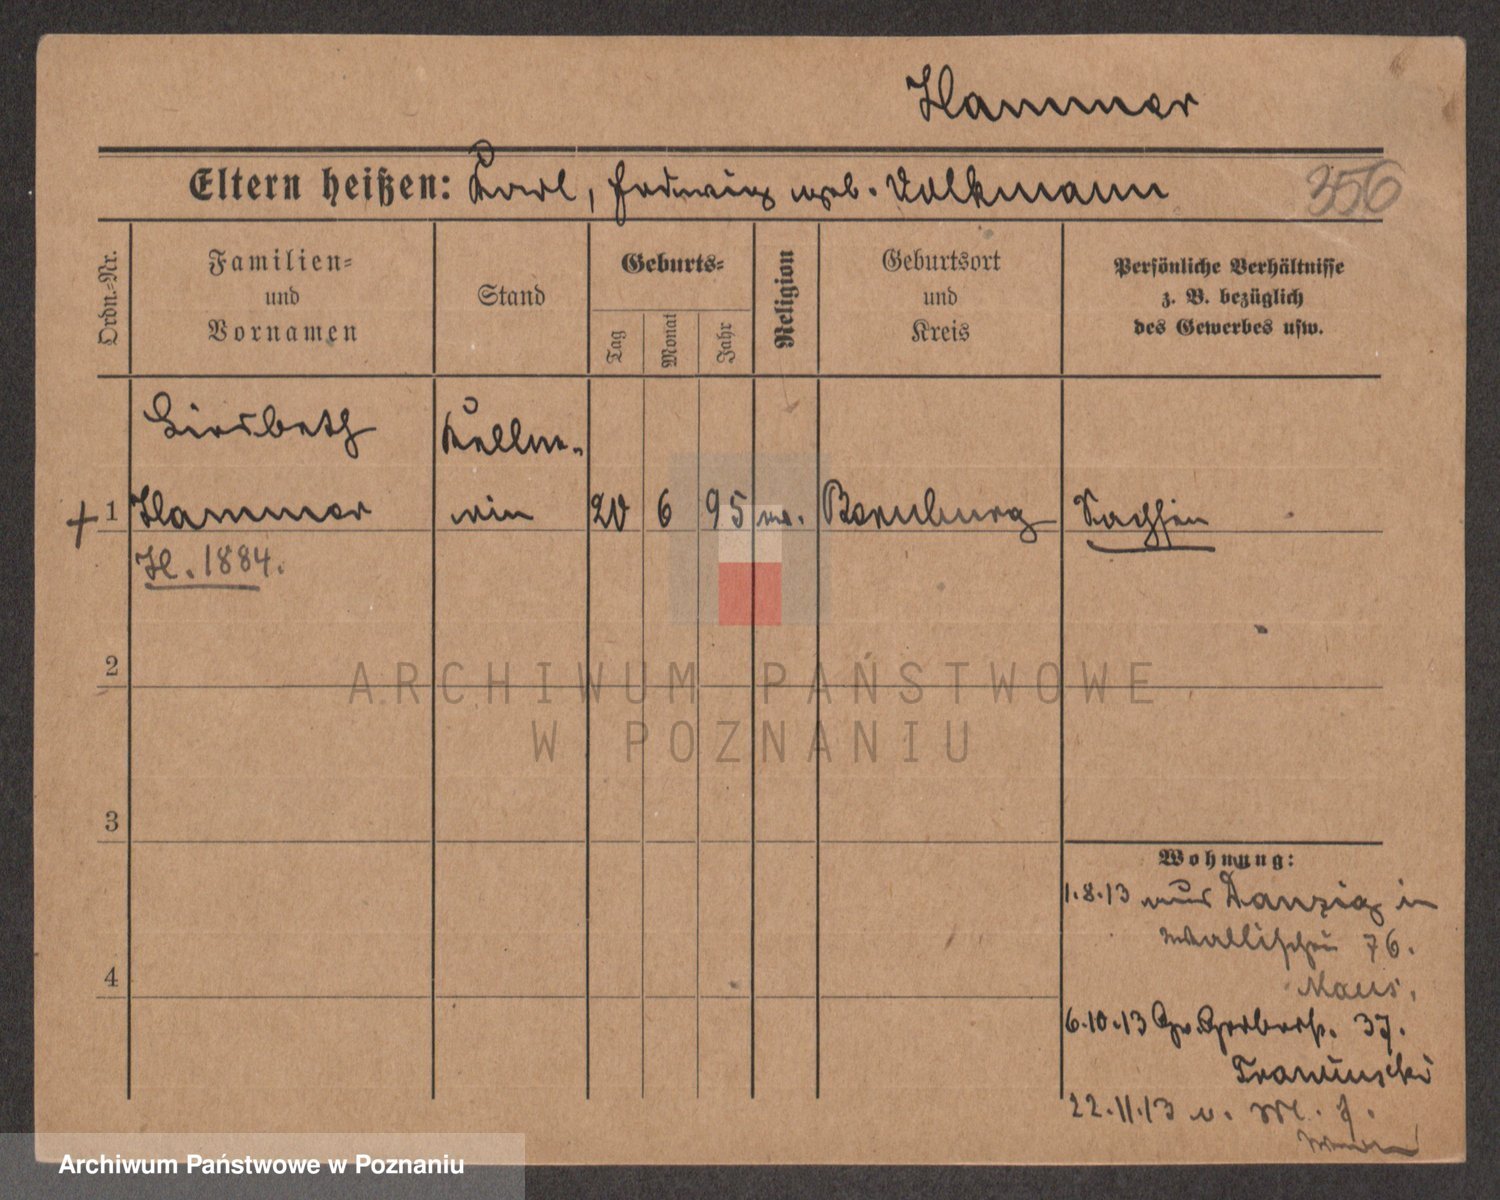 Hammer
Eltern heißen: Karl, Hedwig geb. Volkmann
356
Ordn.-Nr.
Familien-
und
Vornamen
Stand
Geburts-
Tag
Monat
Jahr
Religion
Geburtsort
und
Kreis
Persönliche Verhältnisse
z. B. bezüglich
des Gewerbes usw.
Liesbeth
Kellne-
1
Hammer
rin
20
6
95
ev.
Bernburg
Sachsen
H. 1884.
2
3
4
Wohnung:
1.8.13 aus Danzig in
Wallischei 76.
6.10.13 Gr. Gerberst. 37.
22.11.13 n.
ARCHIWUM PAŃSTWOWE
W POZNANIU
Archiwum Państwowe w Poznaniu